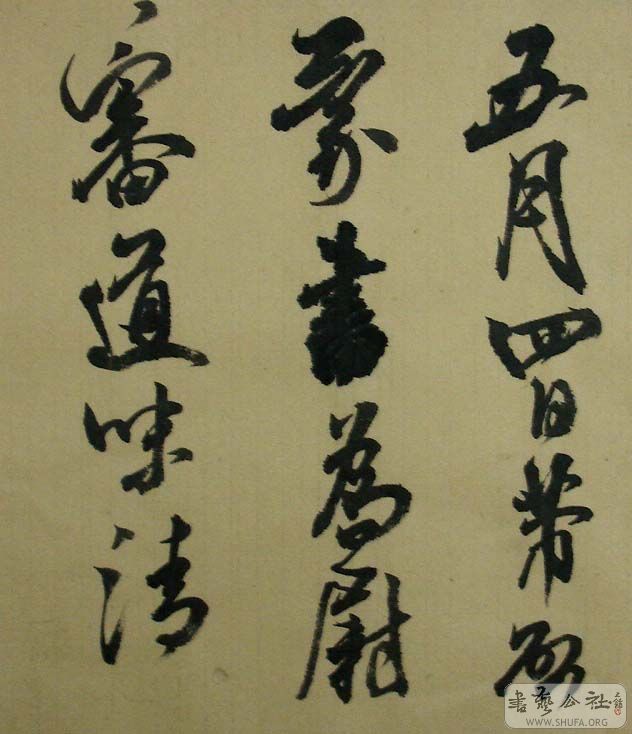 五月四日芾啓
蒙書為尉
審道味清
書藝公社
WWW.SHUFA.ORG